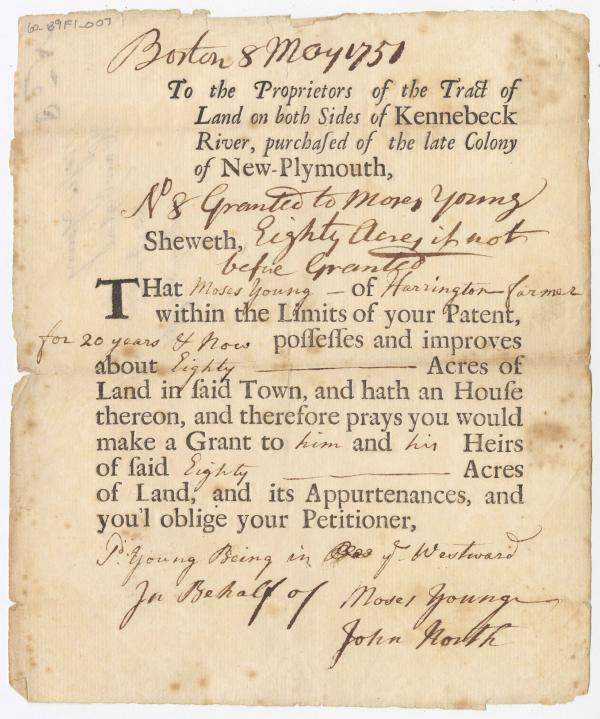 60-89F1-007
Boston 8 May 1751
To the Proprietors of the Tract of
Land on both Sides of Kennebeck
River, purchaſed of the late Colony
of New-Plymouth,
No 8 Granted to Moses Young
Sheweth, Eighty Acres if not
before Granted
THat Moses Young — of Harrington farmer
within the Limits of your Patent,
for 20 years & Now poſſeſſes and improves
about Eighty — Acres of
Land in ſaid Town, and hath an Houſe
thereon, and therefore prays you would
make a Grant to him and his Heirs
of ſaid Eighty — Acres
of Land, and its Appurtenances, and
you'l oblige your Petitioner,
Young Being in ye Westward
In Behalf of Moses Young
John North